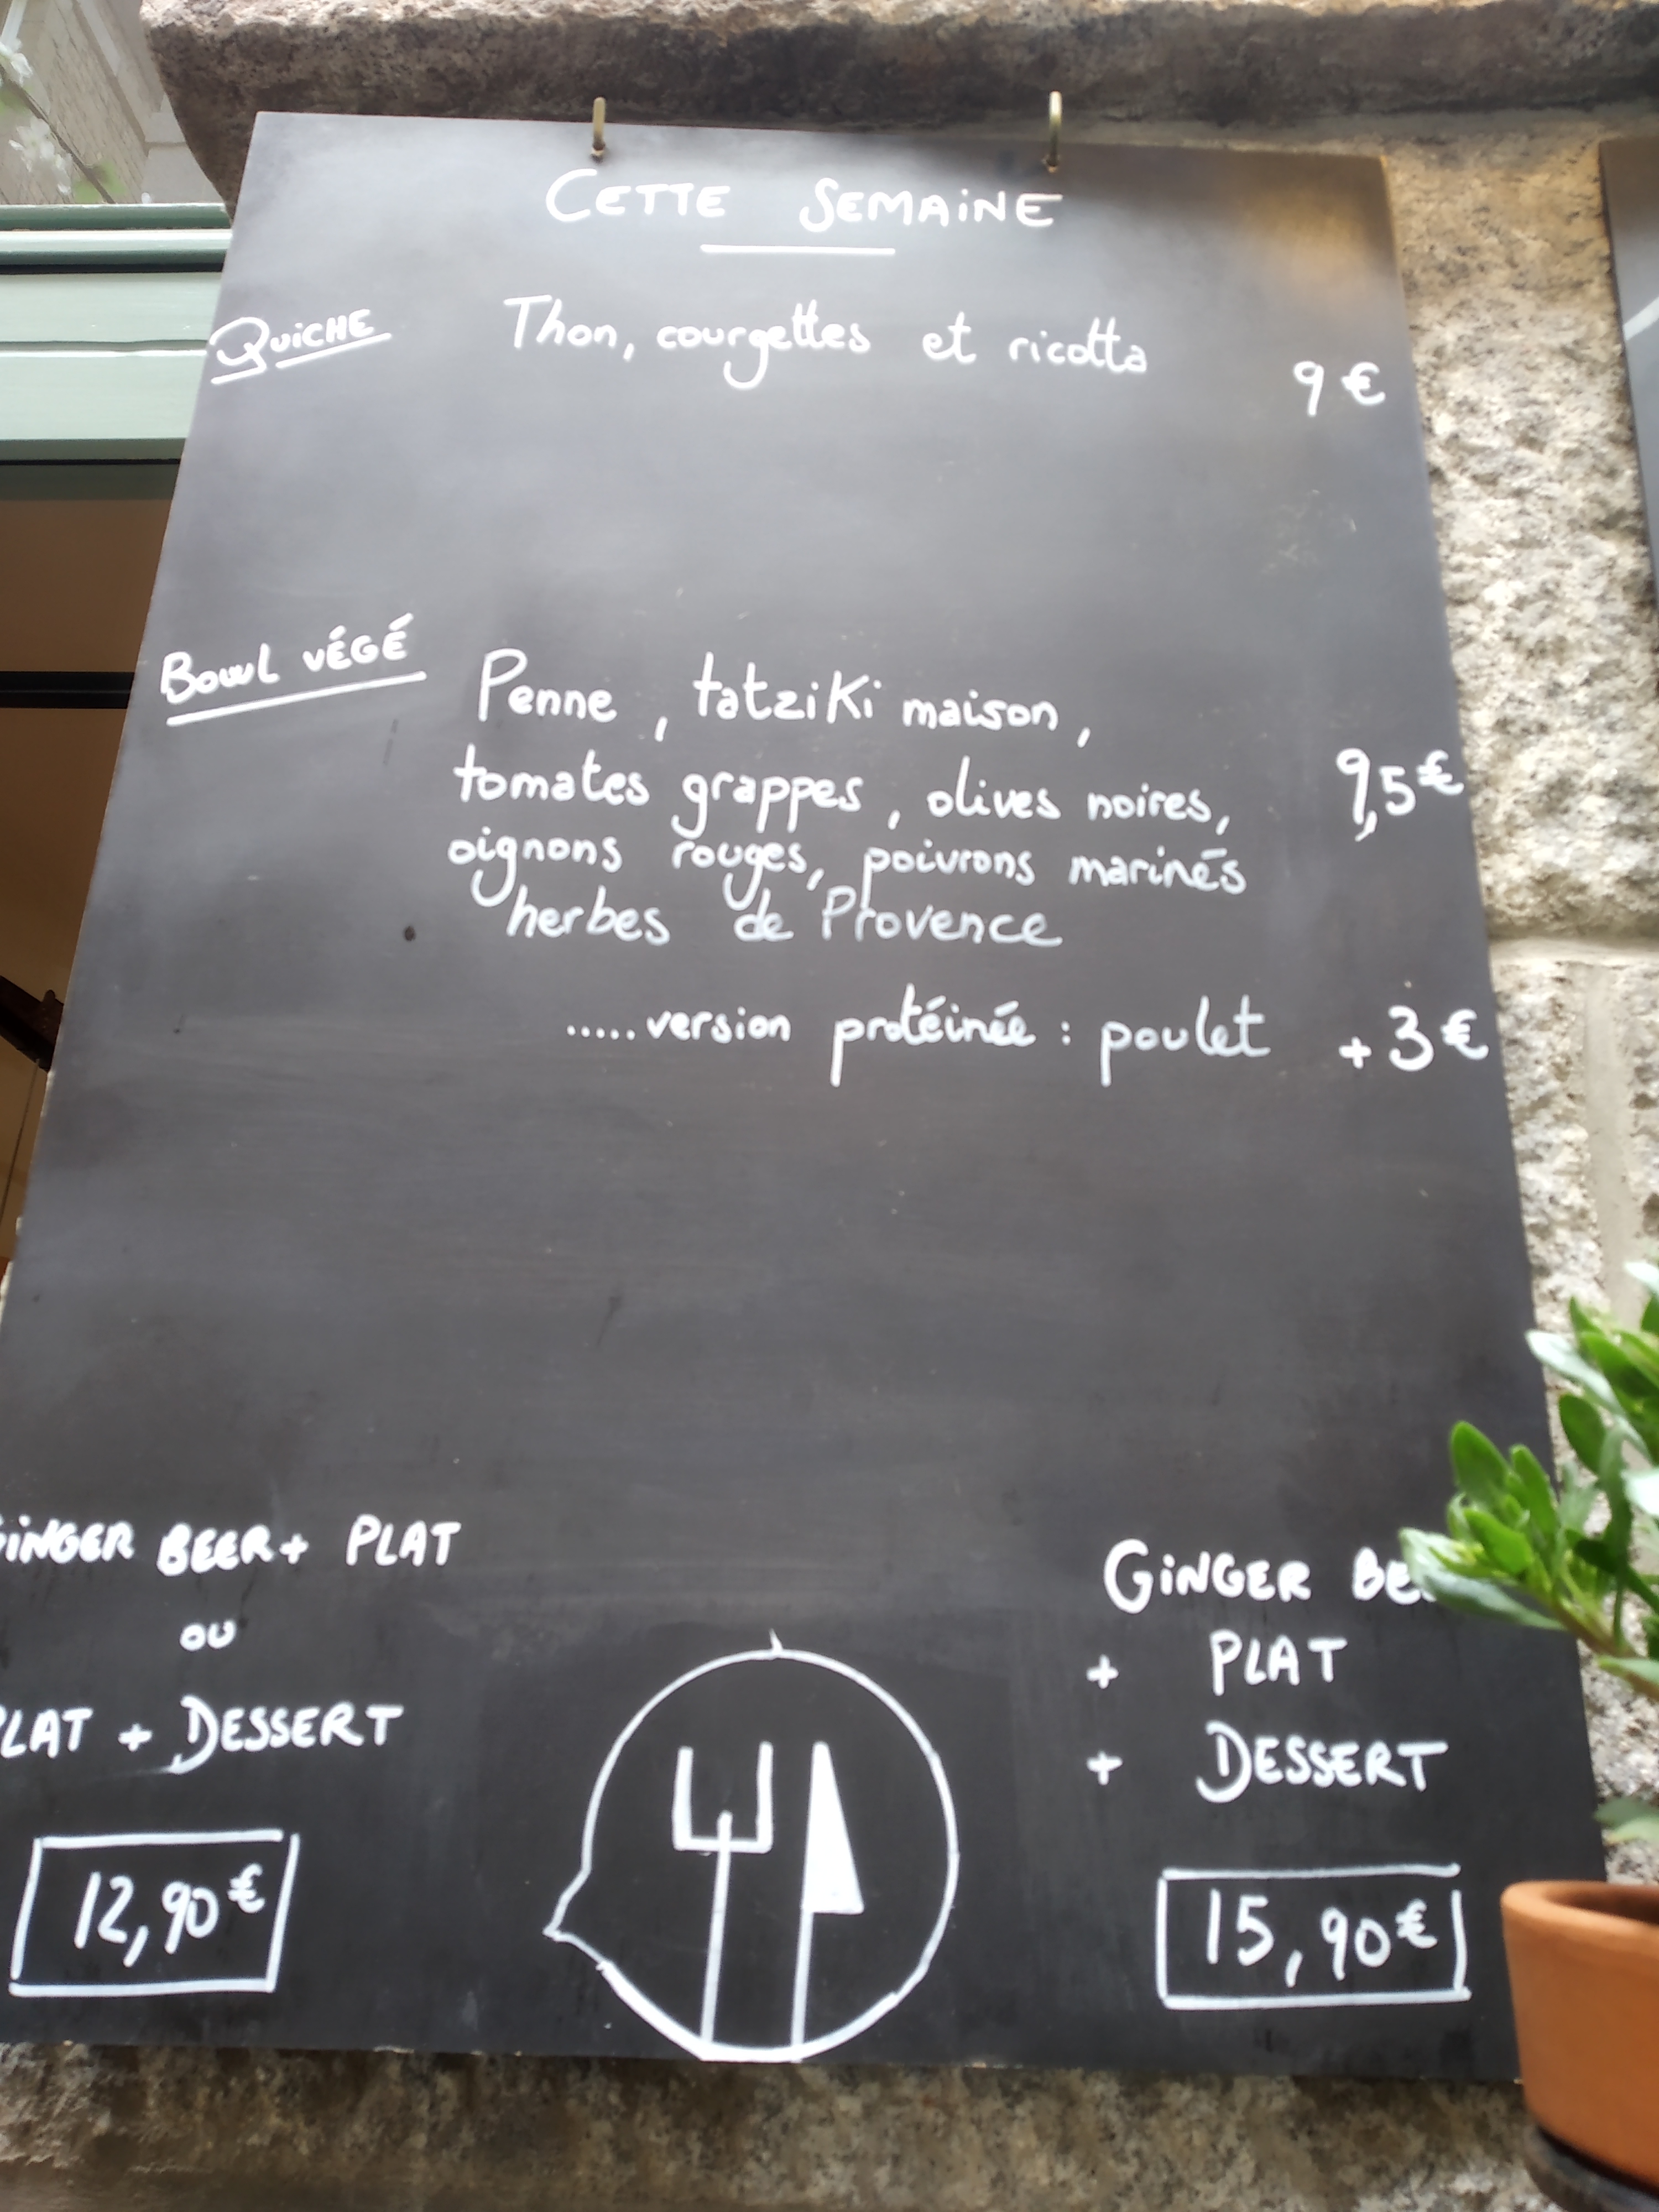 CETTE SEMAINE
QUICHE Thon, courgettes et ricotta 9 €
BOWL VÉGÉ Penne, tatziki maison,
tomates grappes, olives noires, 9,5 €
oignons rouges, poivrons marinés
herbes de Provence
.....version protéinée : poulet + 3 €
GINGER BEER + PLAT
OU
PLAT + DESSERT
12,90 €
GINGER BE
+ PLAT
+ DESSERT
15,90 €